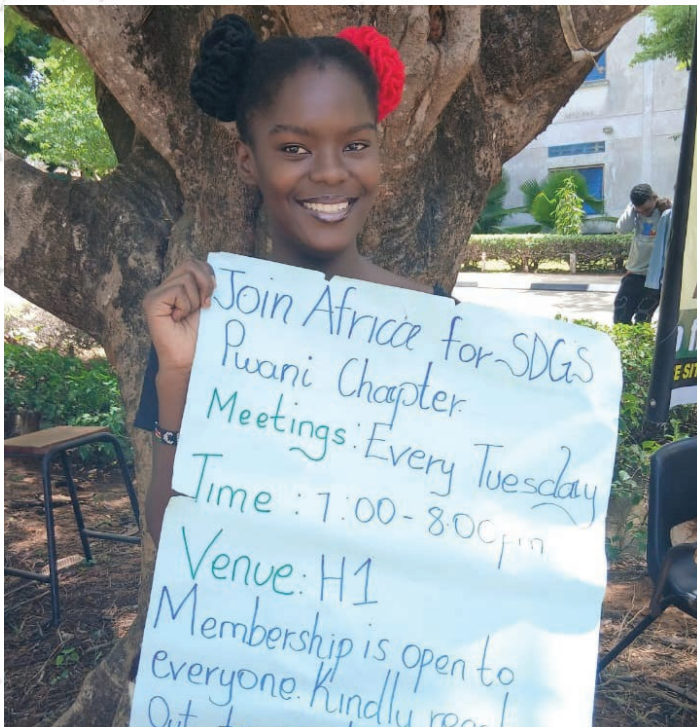 Join Africa for SDGS
Pwani Chapter.
Meetings: Every Tuesday
Time: 7:00-8:00pm
Venue: H1
Membership is open to
everyone. Kindly reach
Out to
E SIT